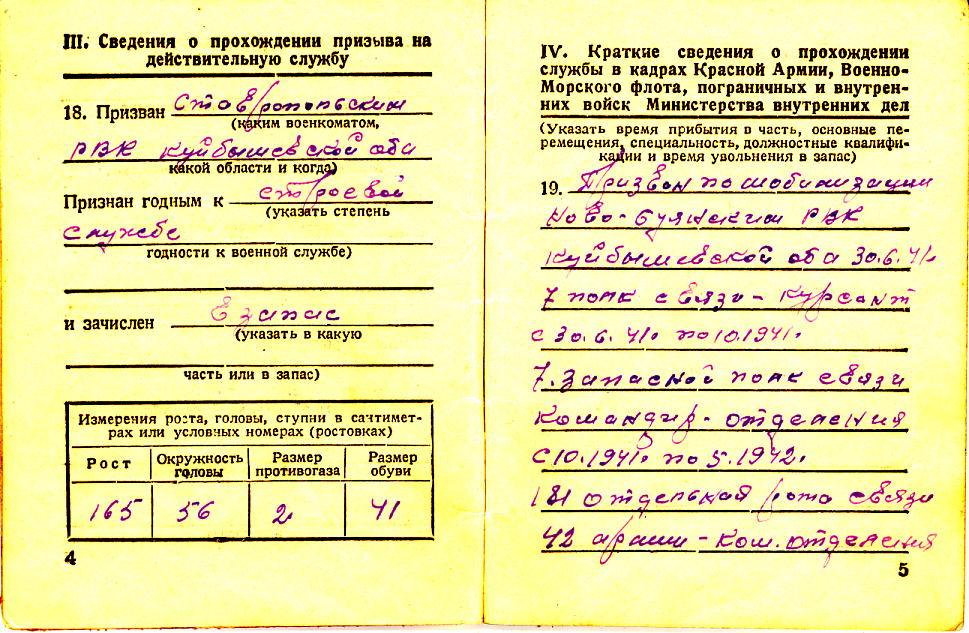 III. Сведения о прохождении призыва на
действительную службу
18. Призван Ставропольским
(каким военкоматом,
РВК Куйбышевской обл
какой области и когда)
Признан годным к строевой
(указать степень
службе
годности к военной службе)
и зачислен в запас
(указать в какую
часть или в запас)
Измерения роста, головы, ступни в сантимет-
рах или условных номерах (ростовках)
Рост Окружность головы Размер противогаза Размер обуви
165 56 2 41
4
IV. Краткие сведения о прохождении
службы в кадрах Красной Армии, Военно-
Морского флота, пограничных и внутрен-
них войск Министерства внутренних дел
(Указать время прибытия в часть, основные пе-
ремещения, специальность, должностные квалифи-
кации и время увольнения в запас)
19. Призван по мобилизации
Ново-Буянским РВК
Куйбышевской обл 30.6.41.
7 полк связи - курсант
с 30.6.41. по 10.1941.
7. Запасной полк связи
командир - отделения
с 10.1941. по 5.1942.
181 отдельная рота связи
42 армии - ком. отделения
5